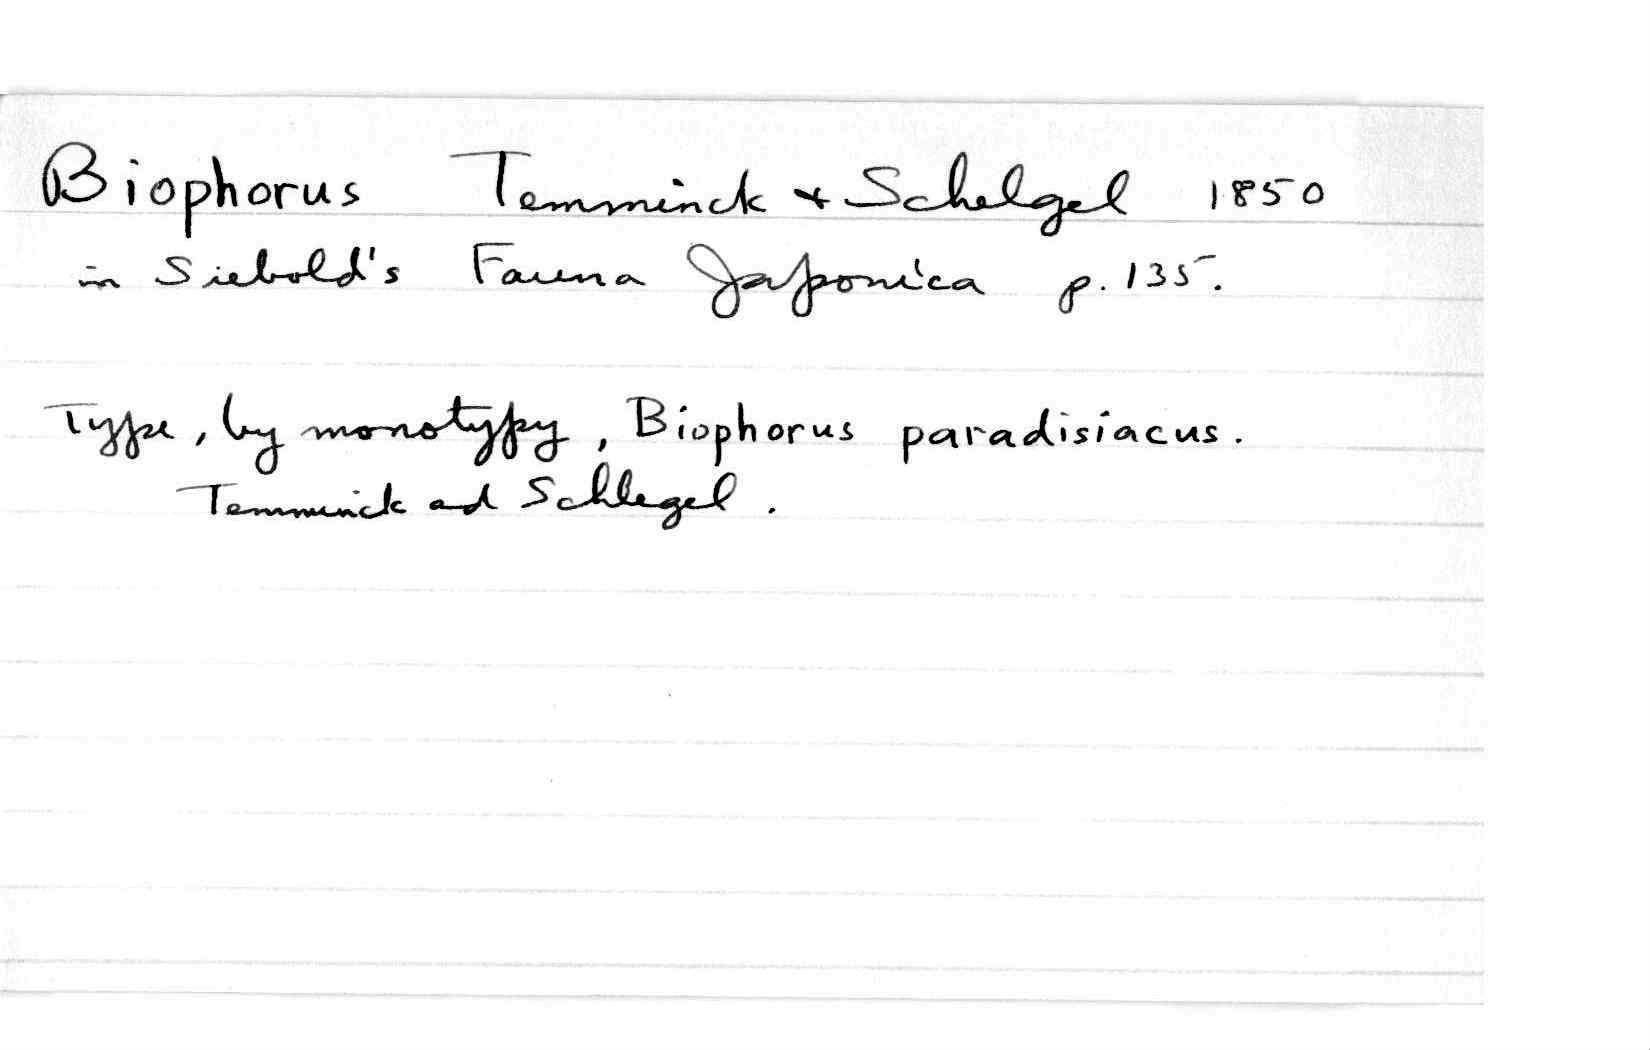 Biophorus Temminck & Schelgel 1850
in Siebold's Fauna Japonica p. 135.
Type, by monotypy, Biophorus paradisiacus.
Temminck and Schlegel.